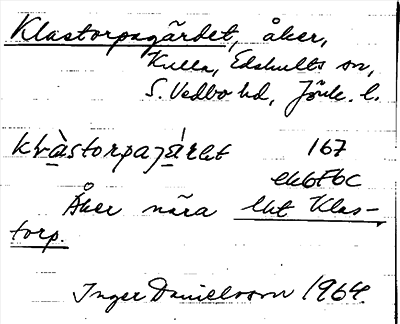 Klastorpagärdet, åker,
Kulla, Edshults sn,
S. Vedbo hd, Jönk. l.
167
ek6F6c
Åker nära lht Klas-
torp.
Inger Danielsson 1964